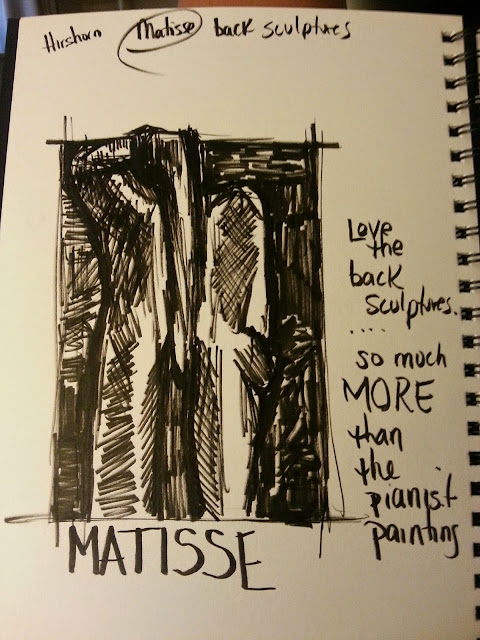 Hirshorn Matisse back sculptures
Love
the
back
sculptures.
....
so much
MORE
than
the
pianist
painting
MATISSE